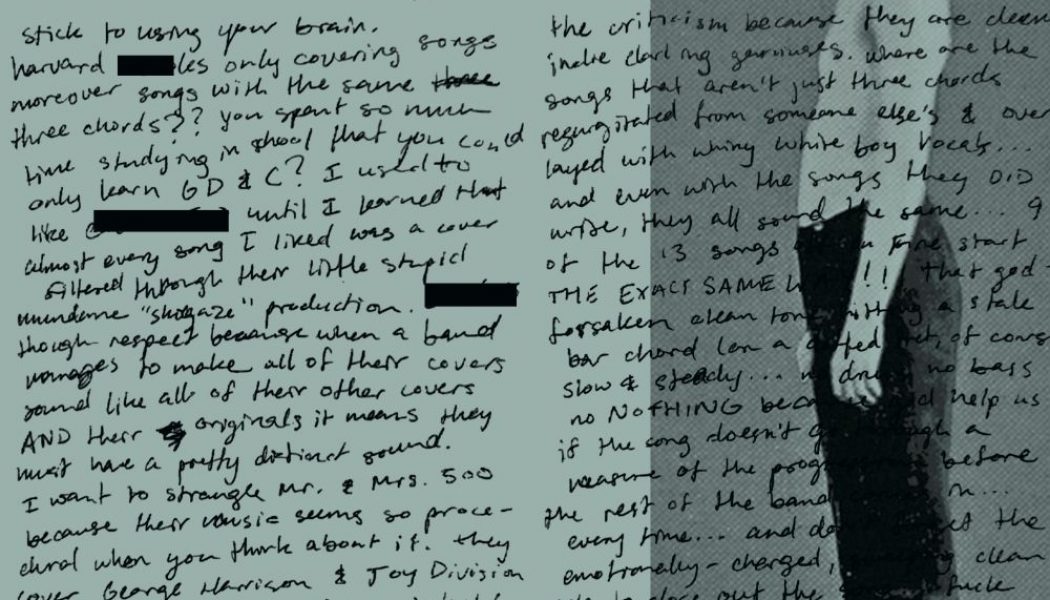 stick to using your brain.
harvard les only covering songs
moreover songs with the same
three chords?? you spent so much
time studying in school that you could
only learn G D & C? I used to
like until I learned that
almost every song I liked was a cover
filtered through their little stupid
mundane "shogaze" production.
though respect because when a band
manages to make all of their covers
sound like all of their other covers
AND their originals it means they
must have a pretty distinct sound.
I want to strangle Mr. & Mrs. 500
because their music seems so proce-
dural when you think about it. they
cover George Harrison & Joy Division
the criticism because they are clean
indie darling geniuses. where are the
songs that aren't just three chords
regurgitated from someone else's & over
layed with whiny white boy vocals...
and even with the songs they DID
write, they all sound the same... 9
of the 13 songs Fine start
THE EXACT SAME !!! that god-
forsaken clean tone hitting a stale
bar chord (on a fret, of cours
slow & steady... no drums no bass
no NOTHING because god help us
if the song doesn't go through a
measure of the progression before
the rest of the band in...
every time... and don't the
emotionally-charged, clean
out the fuck